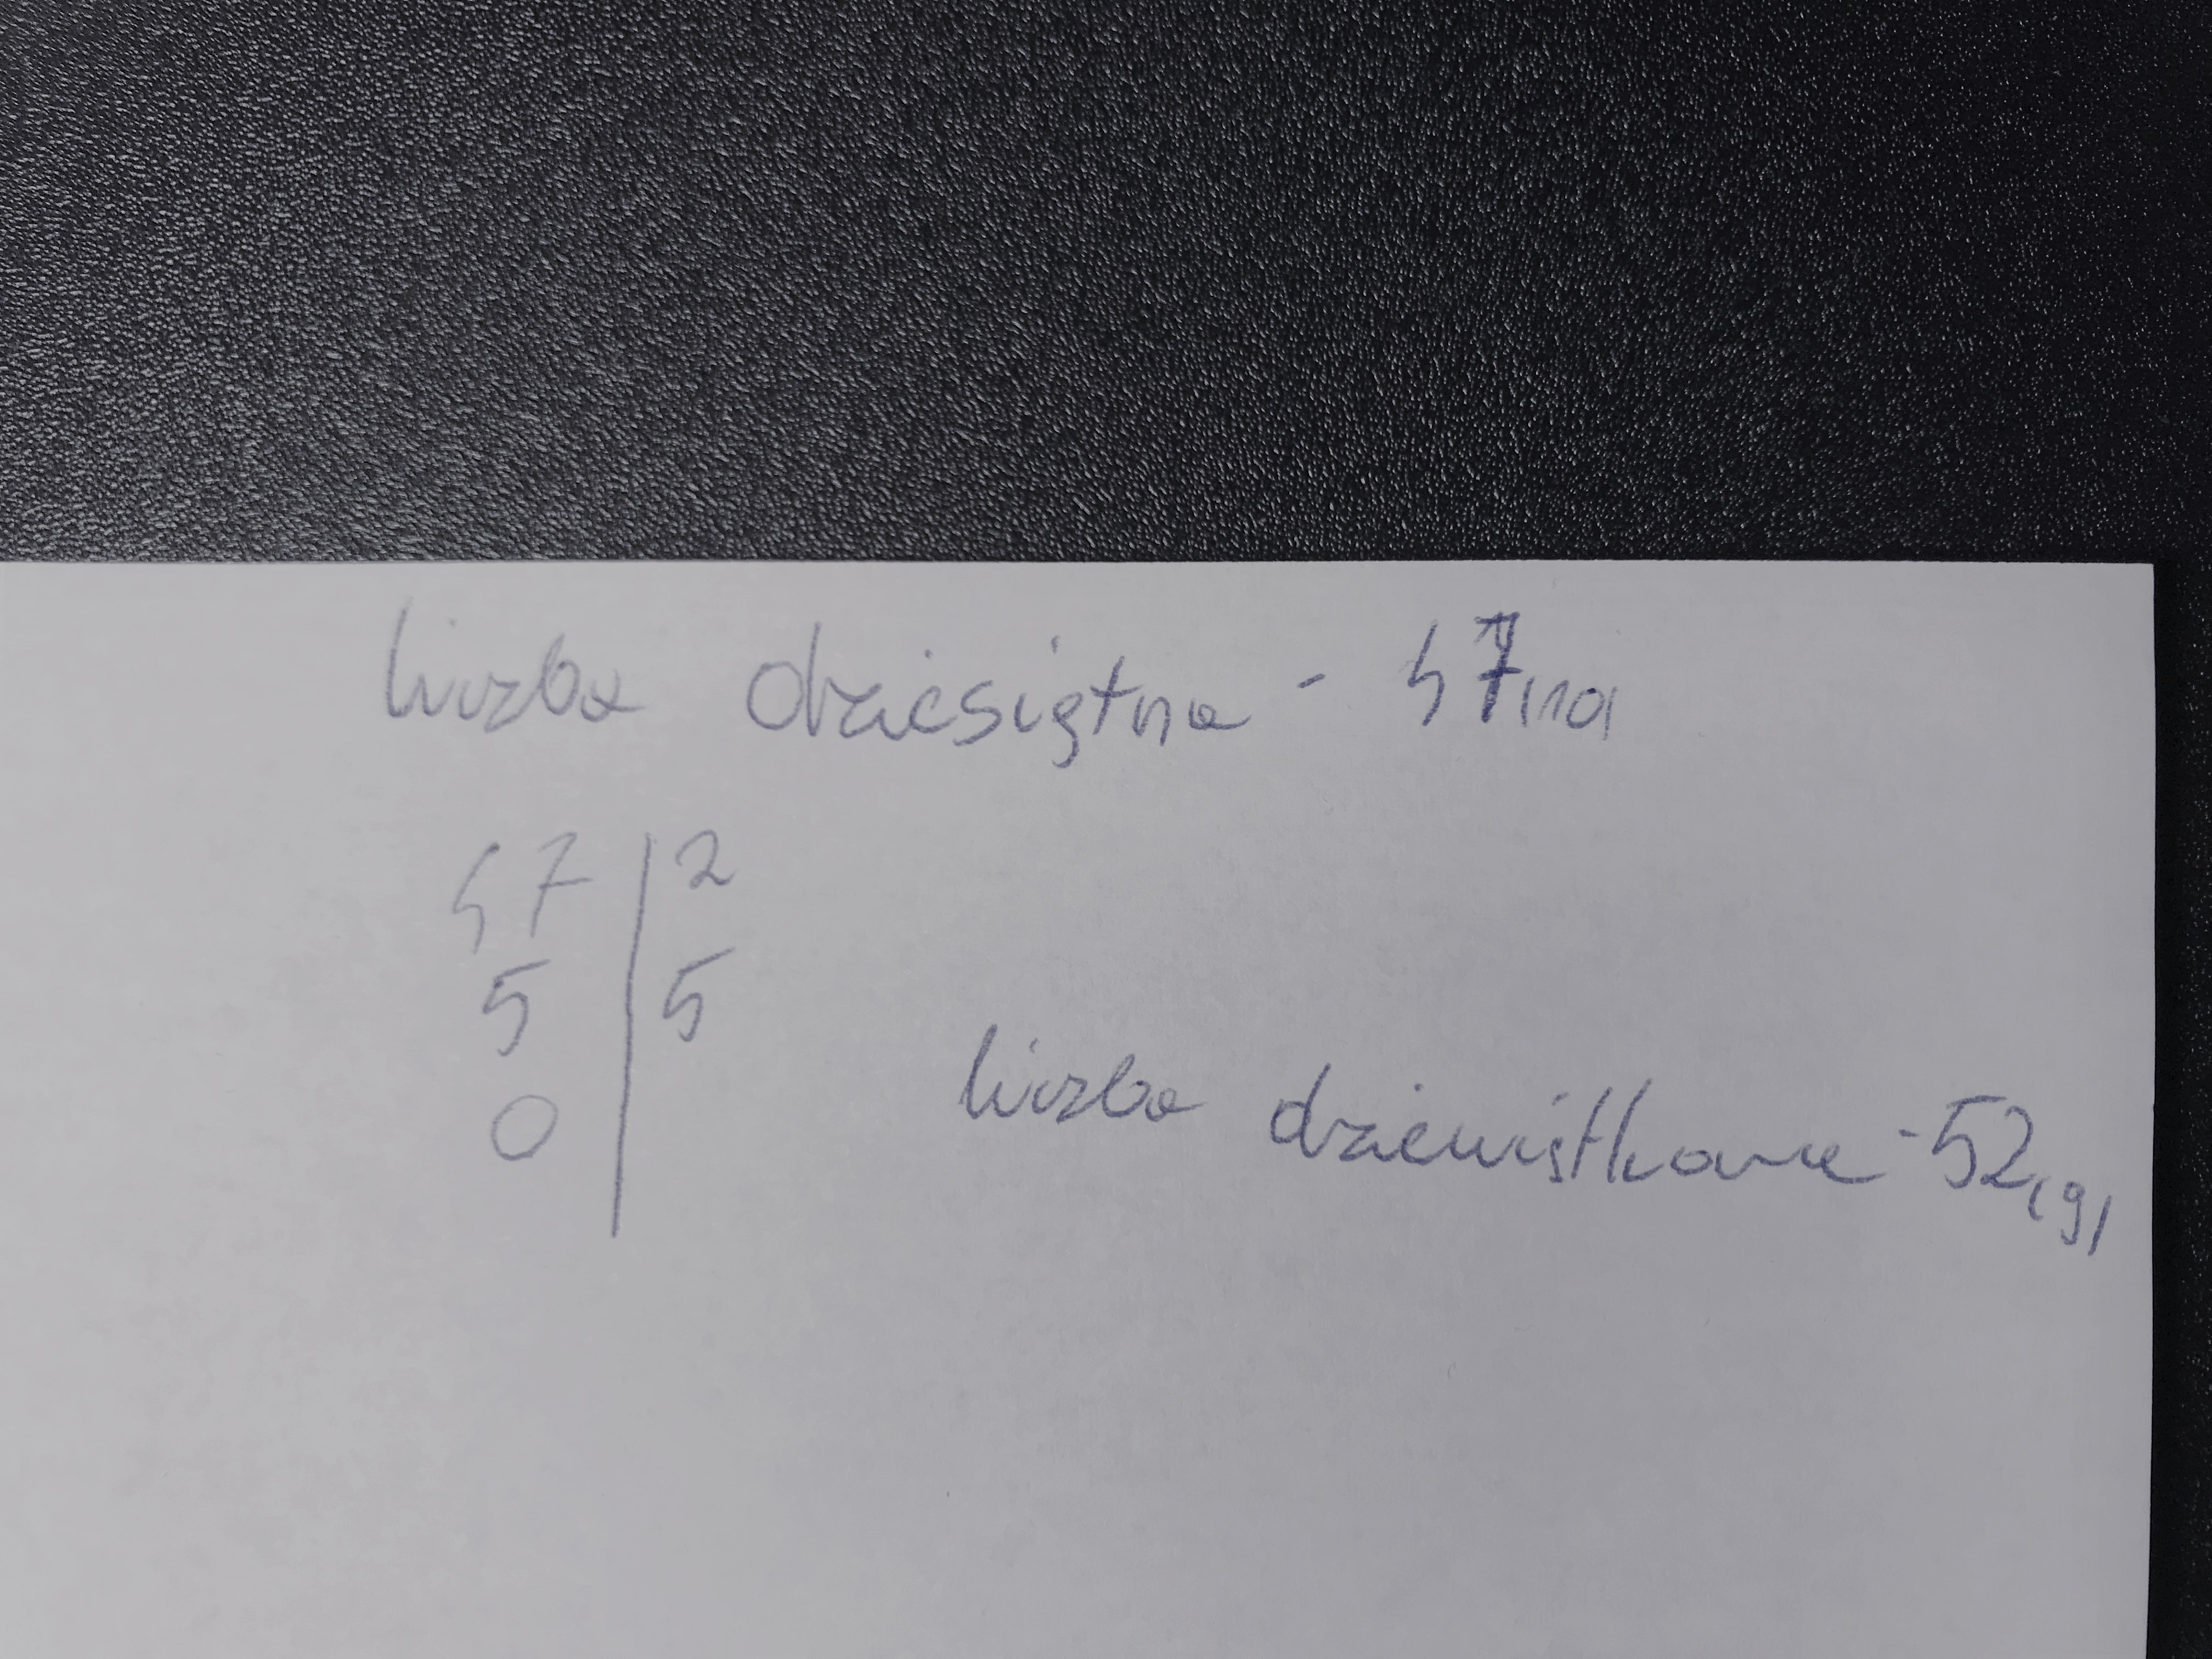 liczba dziesiętna - 47(10)
47 | 2
5 | 5
0 |
liczba dziewiątkowa - 52(9)